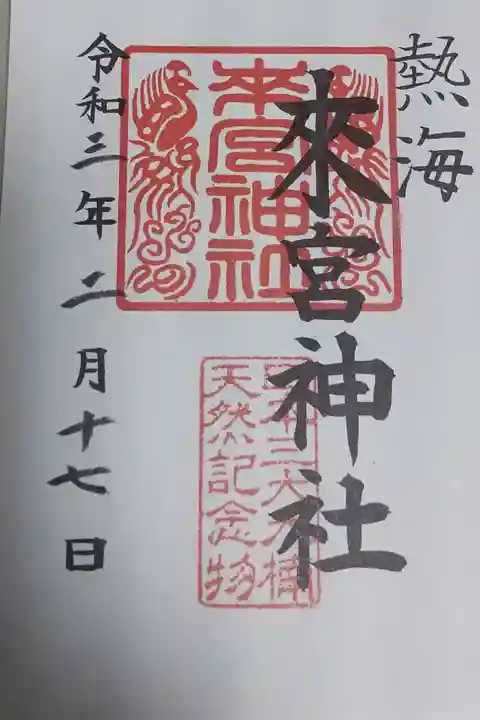 熱海
來宮神社
來宮神社
日本三大大楠
天然記念物
令和三年二月十七日